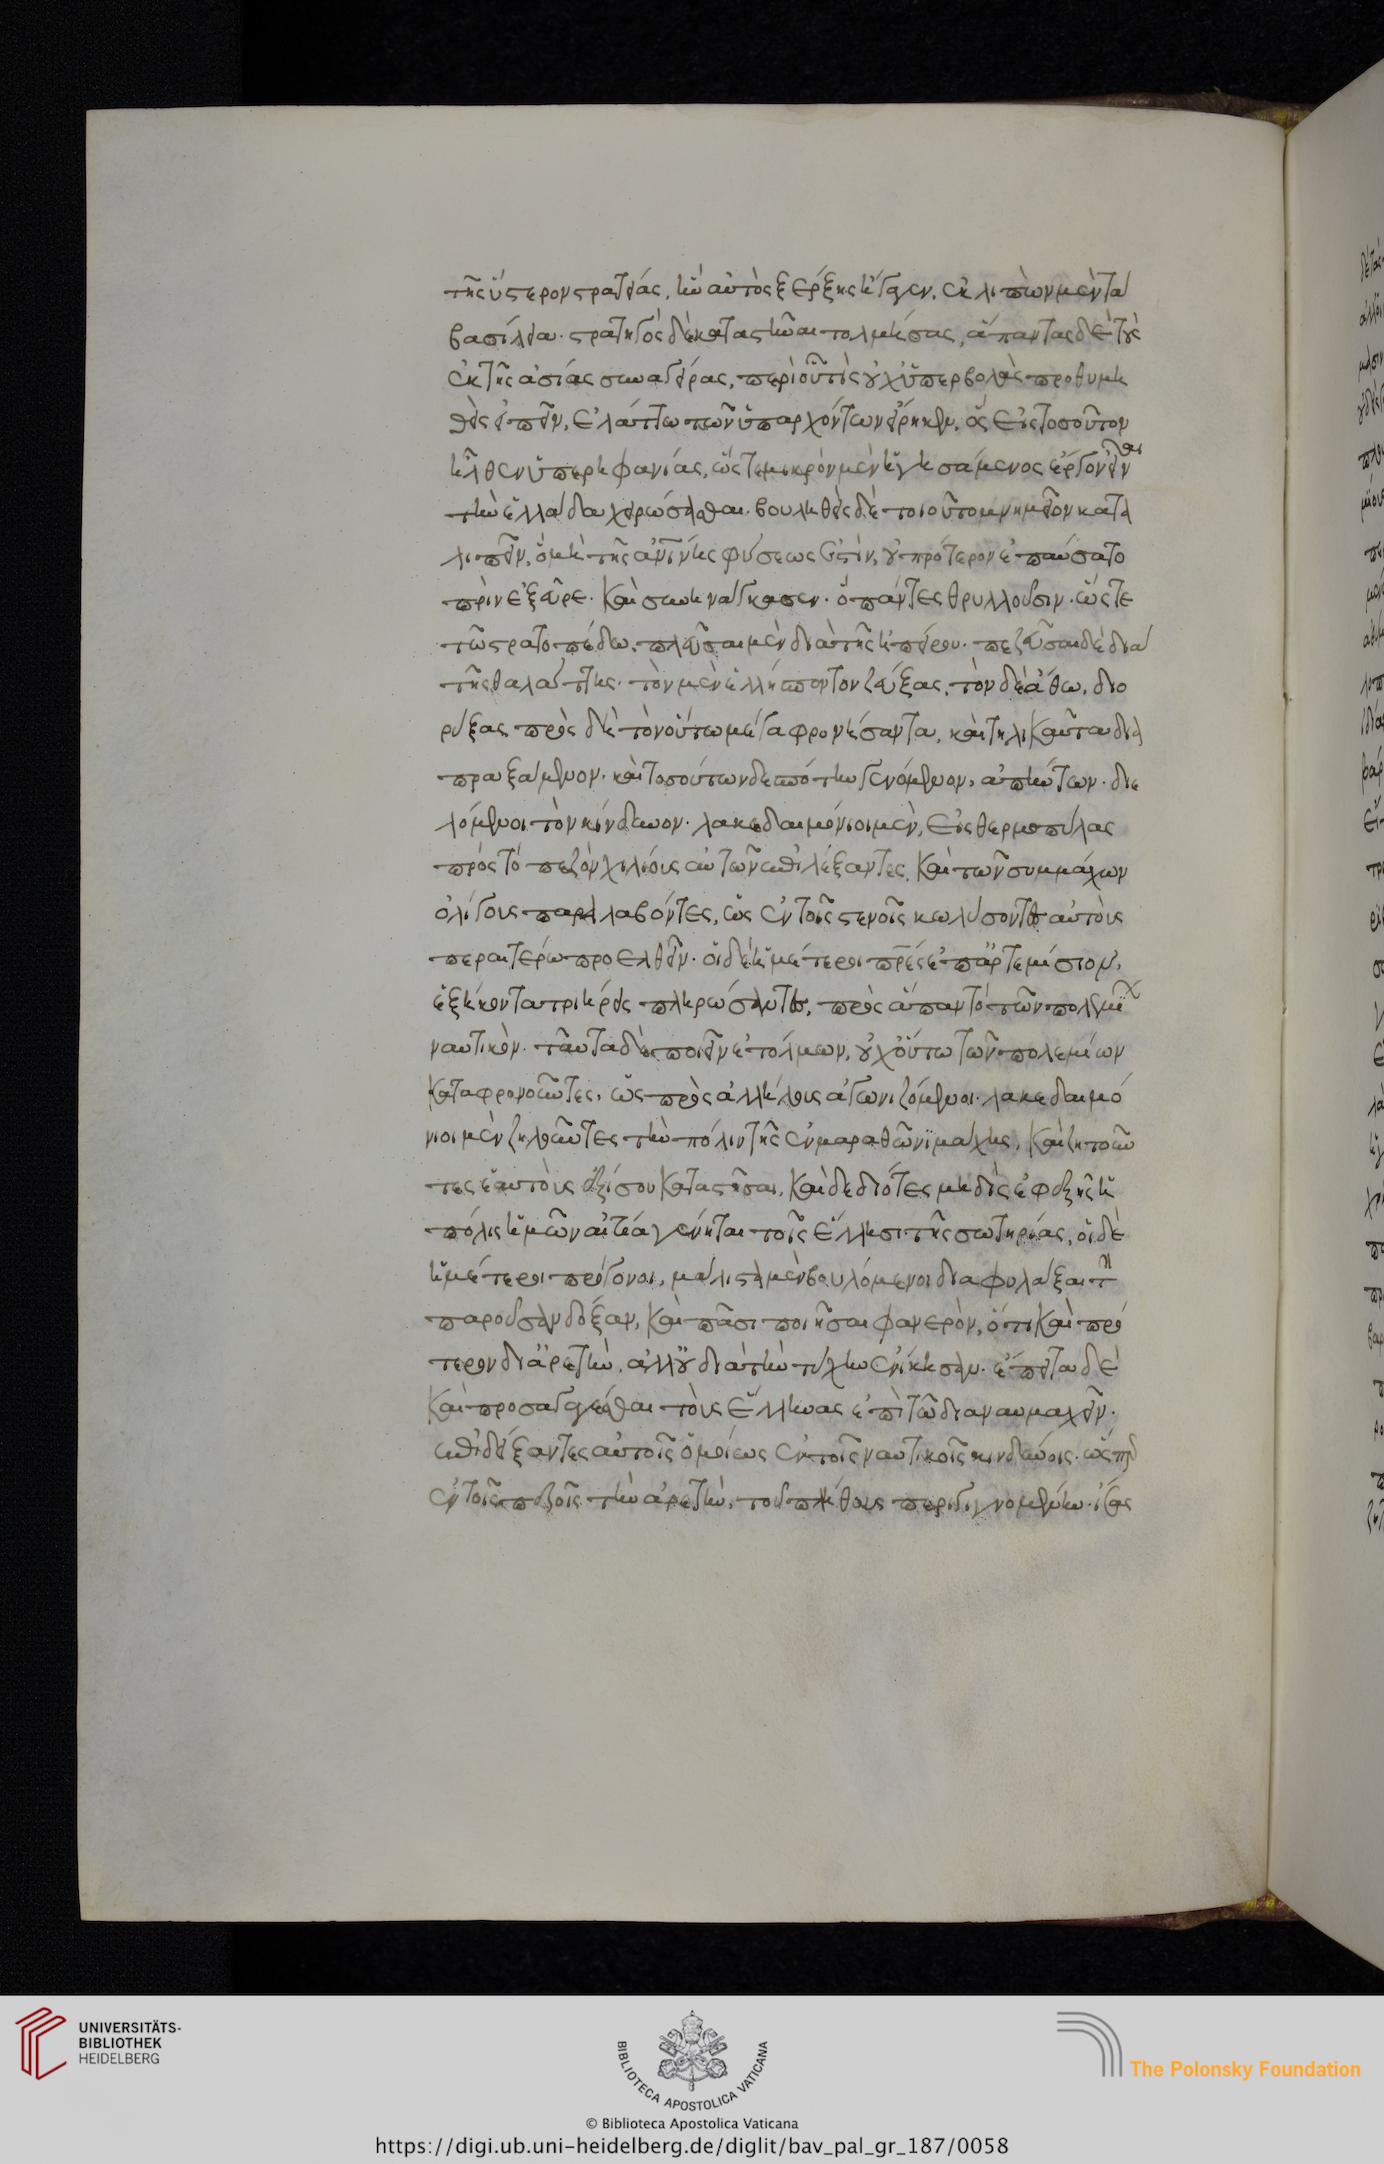 τῆς ὕστερον στρατείας, ἣν αὐτὸς ξέρξης ἤγαγεν, ἐκλιπὼν μὲν τὰ
βασίλεια· στρατηγὸς δὲ καταστῆναι τολμήσας, ἅπαντας δὲ τοὺς
ἐκ τῆς ἀσίας συναγείρας, περὶ οὗ τίς οὐχ ὑπερβολὰς προθυμη
θεὶς εἰπεῖν, ἐλάττω τῶν ὑπαρχόντων εἴρηκεν, ὃς εἰς τοσοῦτον
ἦλθεν ὑπερηφανίας, ὥστε μικρὸν μὲν ἡγησάμενος ἔργον εἶναι
τὴν ἑλλάδα χειρώσασθαι· βουληθεὶς δὲ τοιοῦτο μνημεῖον κατα
λιπεῖν, ὃ μὴ τῆς ἀνθρωπίνης φύσεως ἐστὶν, οὐ πρότερον ἐπαύσατο
πρὶν ἐξεῦρε· καὶ συνηνάγκασεν· ὃ πάντες θρυλλοῦσιν· ὥστε
τῶ στρατοπέδω, πλεῦσαι μὲν διὰ τῆς ἠπείρου· πεζεῦσαι δὲ διὰ
τῆς θαλάττης· τὸν μὲν ἑλλήσποντον ζεύξας, τὸν δὲ ἄθω, διο
ρύξας πρὸς δὴ τὸν οὕτω μέγα φρονήσαντα, καὶ τηλικαῦτα δια
πραξάμενον· καὶ τοσούτων δεσπότην γενόμενον, ἀπήντων· διε
λόμενοι τὸν κίνδυνον· λακεδαιμόνιοι μὲν, εἰς θερμοπύλας
πρὸς τὸ πεζὸν χιλίους αὐτῶν ἐπιλέξαντες, καὶ τῶν συμμάχων
ὀλίγους παραλαβόντες, ὡς ἐν τοῖς στενοῖς κωλύσοντες αὐτοὺς
περαιτέρω προελθεῖν· οἱ δ' ἡμέτεροι πρες ἐπ' ἀρτεμίσιον,
ἑξήκοντα τριήρεις πληρώσαντες, πρὸς ἅπαν τὸ τῶν πολεμίων
ναυτικὸν· ταῦτα δὲ ποιεῖν ἐτόλμων, οὐχ οὕτω τῶν πολεμίων
καταφρονοῦντες, ὡς πρὸς ἀλλήλους ἀγωνιζόμενοι· λακεδαιμό
νιοι μὲν ζηλοῦντες τὴν πόλιν τῆς ἐν μαραθῶνι μάχης, καὶ ζητοῦν
τες ἑαυτοὺς ἐξίσου καταστῆσαι, καὶ δεδιότες μὴ δὶς ἐφεξῆς ἡ
πόλις ἡμῶν αἰτία γένηται τοῖς ἕλλησι τῆς σωτηρίας, οἱ δὲ
ἡμέτεροι πρόγονοι, μάλιστα μὲν βουλόμενοι διαφυλάξαι τὴν
παροῦσαν δόξαν, καὶ πᾶσι ποιῆσαι φανερὸν, ὅτι καὶ πρό
τερον δι' ἀρετὴν, ἀλλ' οὐ διὰ τὴν τύχην ἐνίκησαν· ἔπειτα δὲ
καὶ προσαγαγέσθαι τοὺς ἕλληνας ἐπὶ τῶ διαναυμαχεῖν·
ἐπιδείξαντες αὐτοῖς ὁμοίως ἐν τοῖς ναυτικοῖς κινδύνοις· ὥσπερ
ἐν τοῖς πεζοῖς τὴν ἀρετὴν, τοῦ πλήθους περιγιγνομένην· ἴσας
UNIVERSITÄTS-
BIBLIOTHEK
HEIDELBERG
BIBLIOTECA APOSTOLICA VATICANA
The Polonsky Foundation
© Biblioteca Apostolica Vaticana
https://digi.ub.uni-heidelberg.de/diglit/bav_pal_gr_187/0058